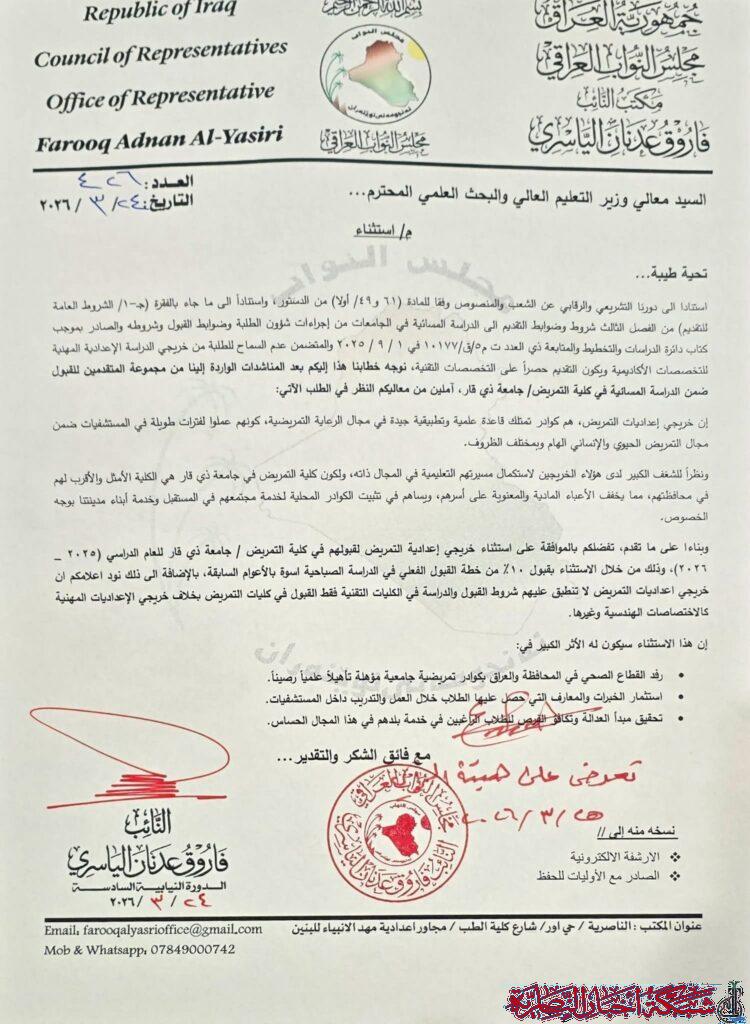 Republic of Iraq
Council of Representatives
Office of Representative
Farooq Adnan Al-Yasiri
بسم الله الرحمن الرحيم
مجلس النواب
مجلس النواب العراقي
جمهورية العراق
مجلس النواب العراقي
مكتب النائب
فاروق عدنان الياسري
العدد: ٤٠٢٦
التاريخ: ٢٤/ ٣ / ٢٠٢٦
السيد معالي وزير التعليم العالي والبحث العلمي المحترم...
م/ استثناء
تحية طيبة...
استنادا الى دورنا التشريعي والرقابي عن الشعب والمنصوص وفقا للمادة (٦١ و٤٩/ أولا) من الدستور، واستناداً الى ما جاء بالفقرة (جـ-١/ الشروط العامة
للتقديم) من الفصل الثالث شروط وضوابط التقديم الى الدراسة المسائية في الجامعات من إجراءات شؤون الطلبة وضوابط القبول وشروطه والصادر بموجب
كتاب دائرة الدراسات والتخطيط والمتابعة ذي العدد ت م٥/ق/١٠١٧٧ في ١ / ٩ / ٢٠٢٥ والمتضمن عدم السماح للطلبة من خريجي الدراسة الإعدادية المهنية
للتخصصات الأكاديمية ويكون التقديم حصراً على التخصصات التقنية، نوجه خطابنا هذا إليكم بعد المناشدات الواردة إلينا من مجموعة المتقدمين للقبول
ضمن الدراسة المسائية في كلية التمريض/ جامعة ذي قار، آملين من معاليكم النظر في الطلب الآتي:
إن خريجي إعداديات التمريض، هم كوادر تمتلك قاعدة علمية وتطبيقية جيدة في مجال الرعاية التمريضية، كونهم عملوا لفترات طويلة في المستشفيات ضمن
مجال التمريض الحيوي والإنساني الهام وبمختلف الظروف.
ونظراً للشغف الكبير لدى هؤلاء الخريجين لاستكمال مسيرتهم التعليمية في المجال ذاته، ولكون كلية التمريض في جامعة ذي قار هي الكلية الأمثل والأقرب لهم
في محافظتهم، مما يخفف الأعباء المادية والمعنوية على أسرهم، ويساهم في تثبيت الكوادر المحلية لخدمة مجتمعهم في المستقبل وخدمة أبناء مدينتنا بوجه
الخصوص.
وبناءا على ما تقدم، تفضلكم بالموافقة على استثناء خريجي إعدادية التمريض لقبولهم في كلية التمريض / جامعة ذي قار للعام الدراسي (٢٠٢٥ _
٢٠٢٦)، وذلك من خلال الاستثناء بقبول ١٠٪ من خطة القبول الفعلي في الدراسة الصباحية اسوة بالأعوام السابقة، بالإضافة الى ذلك نود اعلامكم ان
خريجي اعداديات التمريض لا تنطبق عليهم شروط القبول والدراسة في الكليات التقنية فقط القبول في كليات التمريض بخلاف خريجي الإعداديات المهنية
كالاختصاصات الهندسية وغيرها.
إن هذا الاستثناء سيكون له الأثر الكبير في:
• رفد القطاع الصحي في المحافظة والعراق بكوادر تمريضية جامعية مؤهلة تأهيلاً علمياً رصيناً.
• استثمار الخبرات والمعارف التي حصل عليها الطلاب خلال العمل والتدريب داخل المستشفيات.
• تحقيق مبدأ العدالة وتكافؤ الفرص للطلاب الراغبين في خدمة بلدهم في هذا المجال الحساس.
مع فائق الشكر والتقدير...
تعرض على هيئة
٢٠٢٦/٣/٢٥
النائب
فاروق عدنان الياسري
الدورة النيابية السادسة
٢٤ / ٣ / ٢٠٢٦
مجلس النواب العراقي
النائب فاروق عدنان الياسري
نسخه منه إلى //
❖ الارشفة الالكترونية
❖ الصادر مع الأوليات للحفظ
عنوان المكتب : الناصرية / حي اور/ شارع كلية الطب / مجاور اعدادية مهد الانبياء للبنين
Email: farooqalyasrioffice@gmail.com
Mob & Whatsapp: 07849000742
شبكة اخبار الناصرية